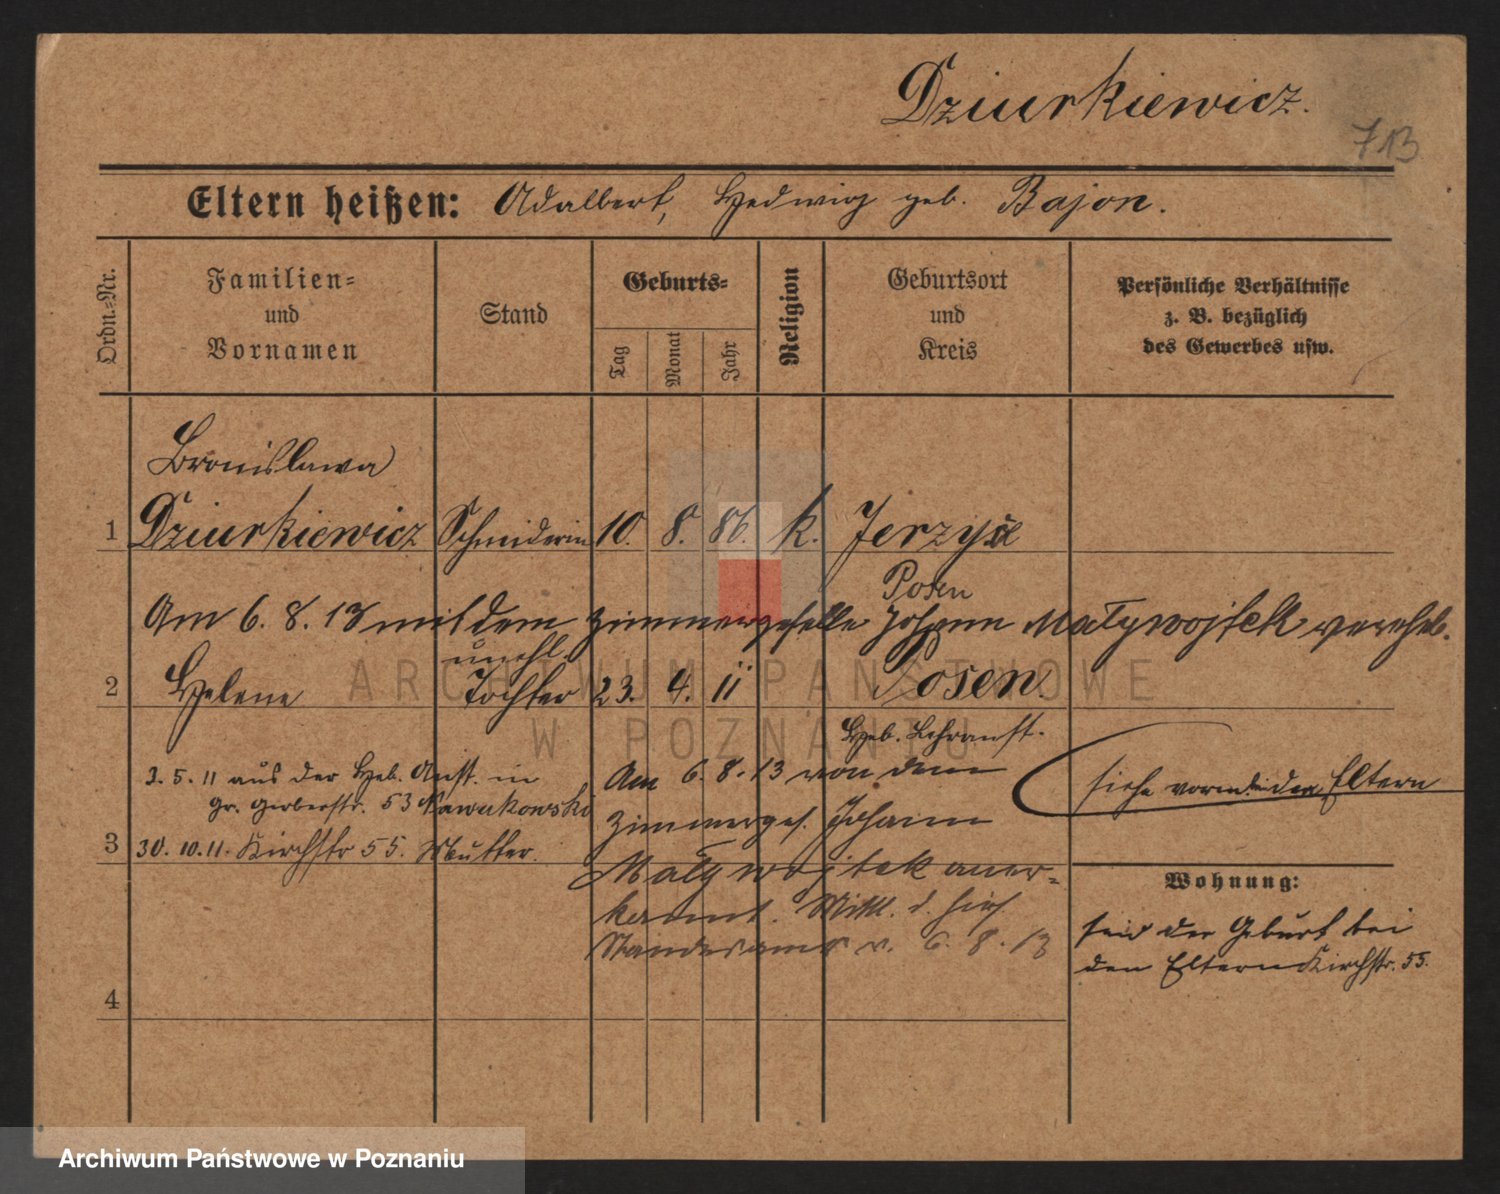 Dziurkiewicz.
713
Eltern heißen: Adalbert, Hedwig geb. Bajon.
Ordn.-Nr.
Familien-
und
Vornamen
Stand
Geburts-
Tag
Monat
Jahr
Religion
Geburtsort
und
Kreis
Persönliche Verhältnisse
z. B. bezüglich
des Gewerbes usw.
Bronislawa
1 Dziurkiewicz Schneiderin 10. 8. 86. k. Jerzyce
Posen
Am 6. 8. 13 mit dem Zimmergeselle Johann Maływojtek verehel.
unehl.
2 Helene Tochter 23. 4. 11 Posen.
Heb. Lehranst.
3. 5. 11 aus der Heb. Anst. in
Gr. Gerberstr. 53 Nawrakowski
3 30. 10. 11. Kirchstr 55. Mutter.
Am 6. 8. 13 von dem
Zimmerges. Johann
Maływojtek aner-
kannt. Mittl. d. hies.
Standesamts v. 6. 8. 13
siehe vorne den Eltern
Wohnung:
seit der Geburt bei
den Eltern Kirchstr. 55.
4
ARCHIWUM PAŃSTWOWE
W POZNANIU
Archiwum Państwowe w Poznaniu